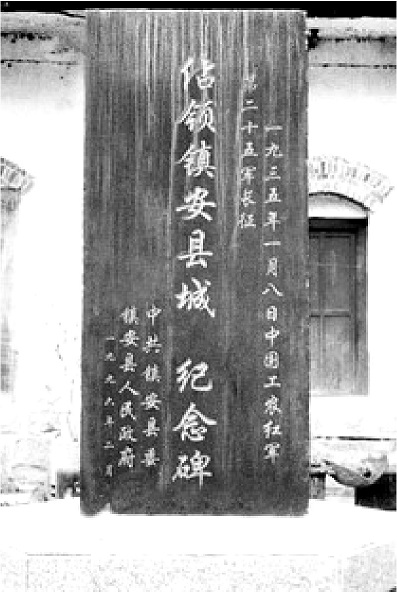 一九三五年一月八日中国工农红军
第二十五军长征
佔领镇安县城 纪念碑
中共镇安县委
镇安县人民政府
一九九六年二月